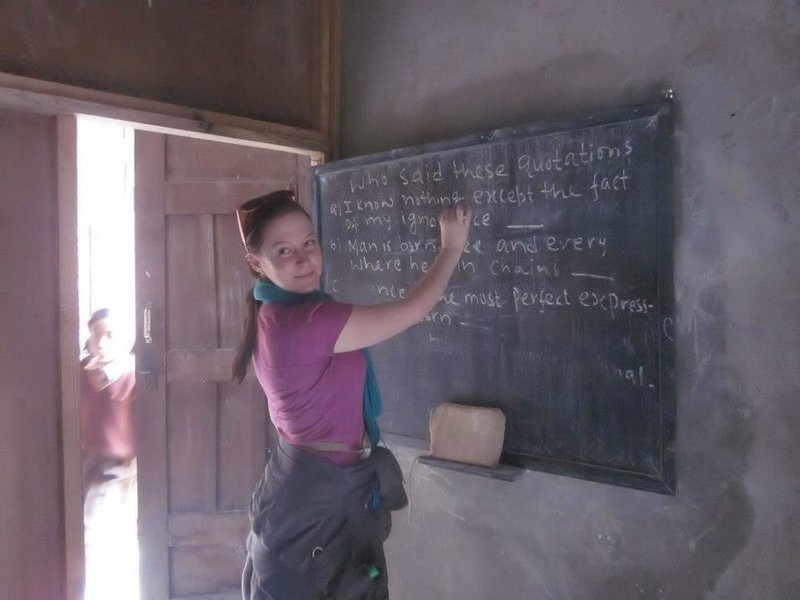 who said these quotations
a) I know nothing except the fact
of my
b) Man is and every
where he in chains
the most perfect express-